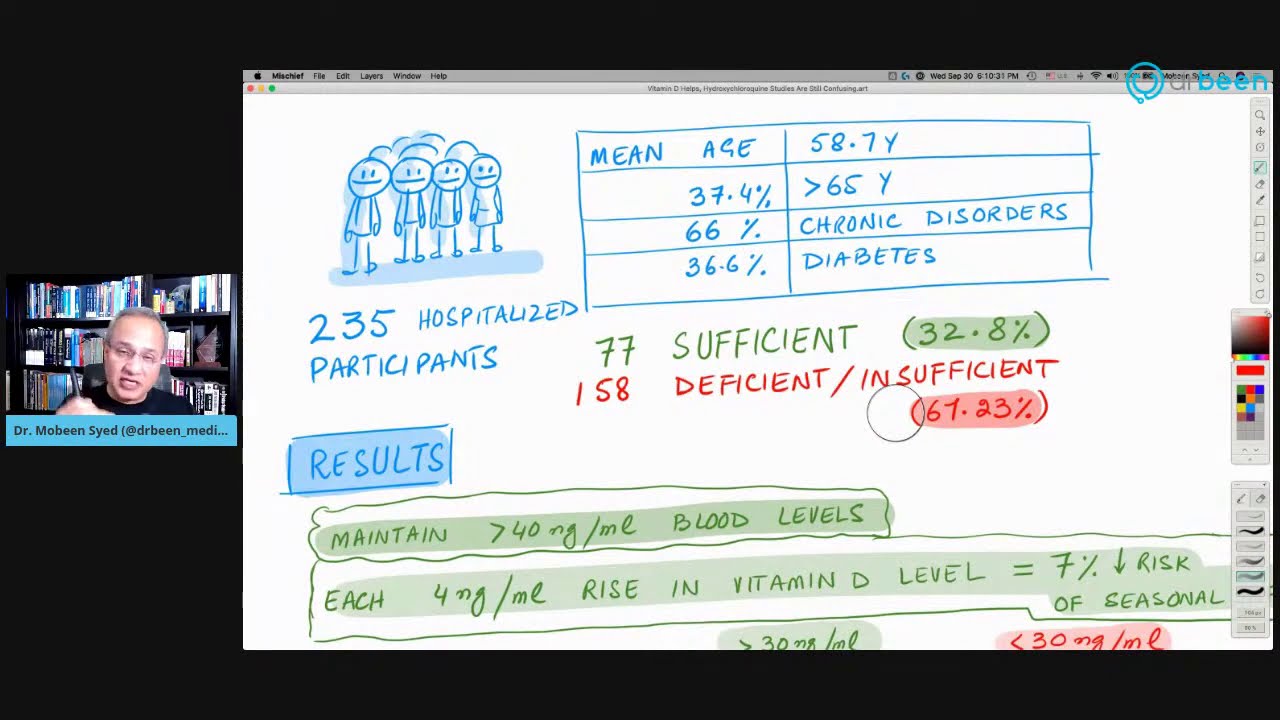 Mischief File Edit Layers Window Help
Wed Sep 30 6:10:31 PM
Mobeen Syed
drbeen
Vitamin D Helps, Hydroxychloroquine Studies Are Still Confusing.art
MEAN AGE 58.7Y
37.4% >65 Y
66 % CHRONIC DISORDERS
36.6% DIABETES
235 HOSPITALIZED
PARTICIPANTS
77 SUFFICIENT (32.8%)
158 DEFICIENT/INSUFFICIENT
(67.23%)
Dr. Mobeen Syed (@drbeen_medi...
RESULTS
MAINTAIN >40 ng/ml BLOOD LEVELS
EACH 4 ng/ml RISE IN VITAMIN D LEVEL = 7% ↓ RISK
OF SEASONAL
>30 ng/ml <30 ng/ml